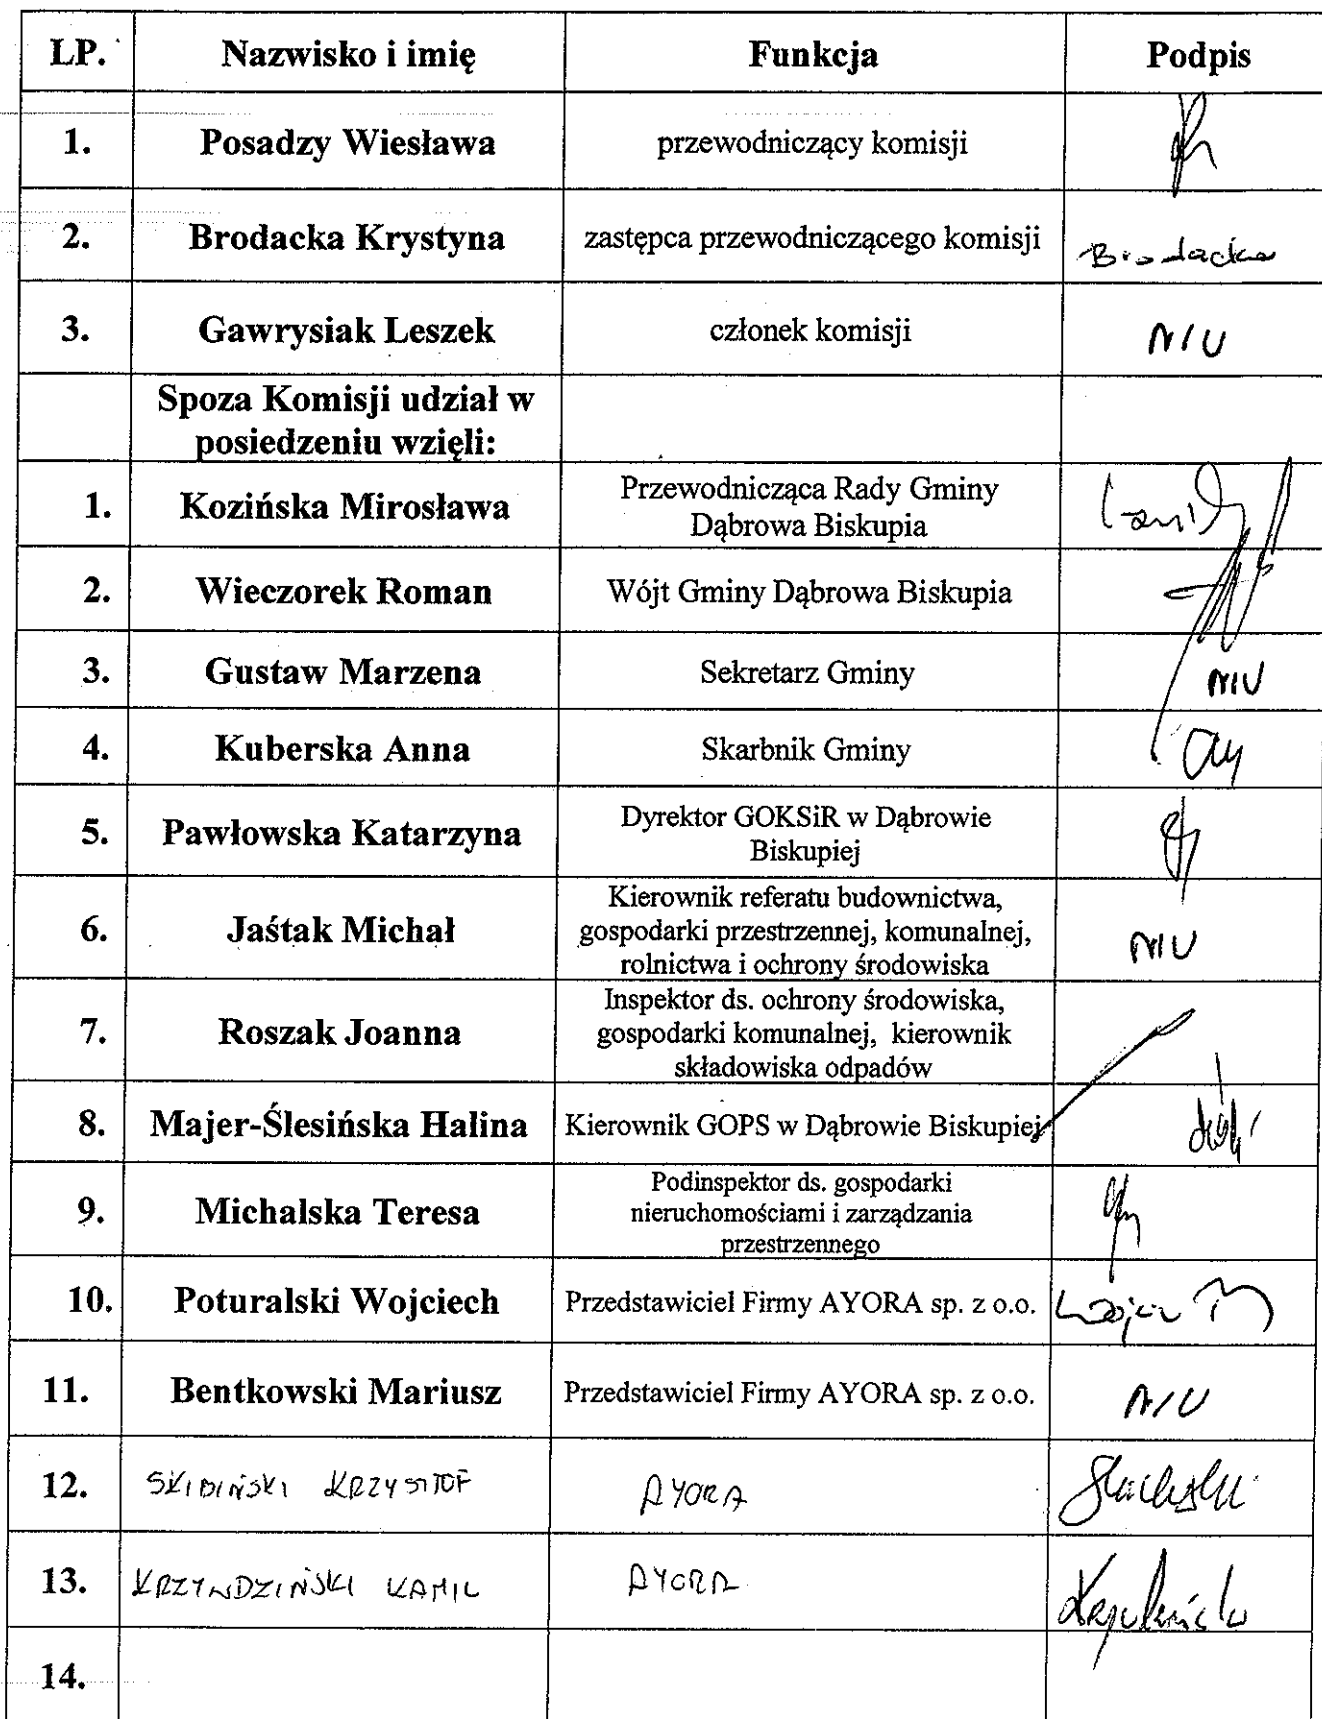 LP. Nazwisko i imię Funkcja Podpis
1. Posadzy Wiesława przewodniczący komisji
2. Brodacka Krystyna zastępca przewodniczącego komisji Brodacka
3. Gawrysiak Leszek członek komisji N/U
Spoza Komisji udział w
posiedzeniu wzięli:
1. Kozińska Mirosława Przewodnicząca Rady Gminy
Dąbrowa Biskupia
2. Wieczorek Roman Wójt Gminy Dąbrowa Biskupia
3. Gustaw Marzena Sekretarz Gminy N/U
4. Kuberska Anna Skarbnik Gminy
5. Pawłowska Katarzyna Dyrektor GOKSiR w Dąbrowie
Biskupiej
6. Jaśtak Michał Kierownik referatu budownictwa,
gospodarki przestrzennej, komunalnej,
rolnictwa i ochrony środowiska N/U
7. Roszak Joanna Inspektor ds. ochrony środowiska,
gospodarki komunalnej, kierownik
składowiska odpadów
8. Majer-Ślesińska Halina Kierownik GOPS w Dąbrowie Biskupiej
9. Michalska Teresa Podinspektor ds. gospodarki
nieruchomościami i zarządzania
przestrzennego
10. Poturalski Wojciech Przedstawiciel Firmy AYORA sp. z o.o.
11. Bentkowski Mariusz Przedstawiciel Firmy AYORA sp. z o.o. N/U
12. SKIBIŃSKI KRZYSZTOF AYORA
13. KRZYWDZIŃSKI KAMIL AYORA
14.